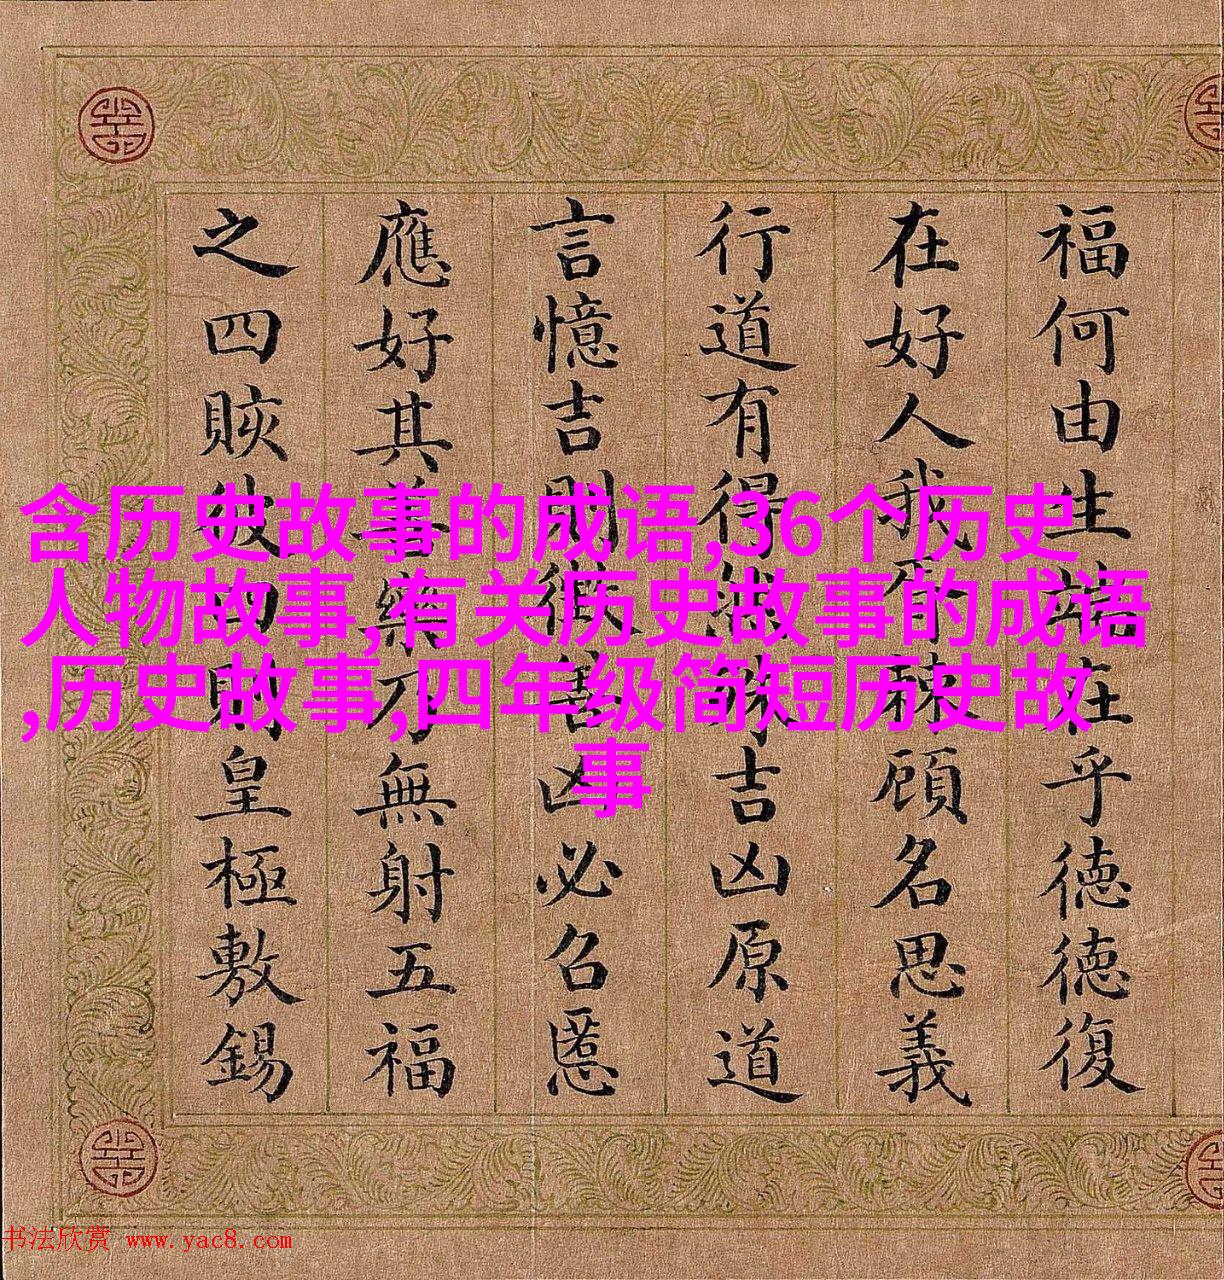 含历史故事的成语,36个历史
人物故事,有关历史故事的成语
,历史故事,四年级简短历史故
事
福何由生端在乎德德復
在好人我顧名思義
行道有得吉凶原道
言憶吉則凶必召慝
應好其善樂乃無射五福
之四賅皇極敷錫
书法欣赏 www.yac8.com